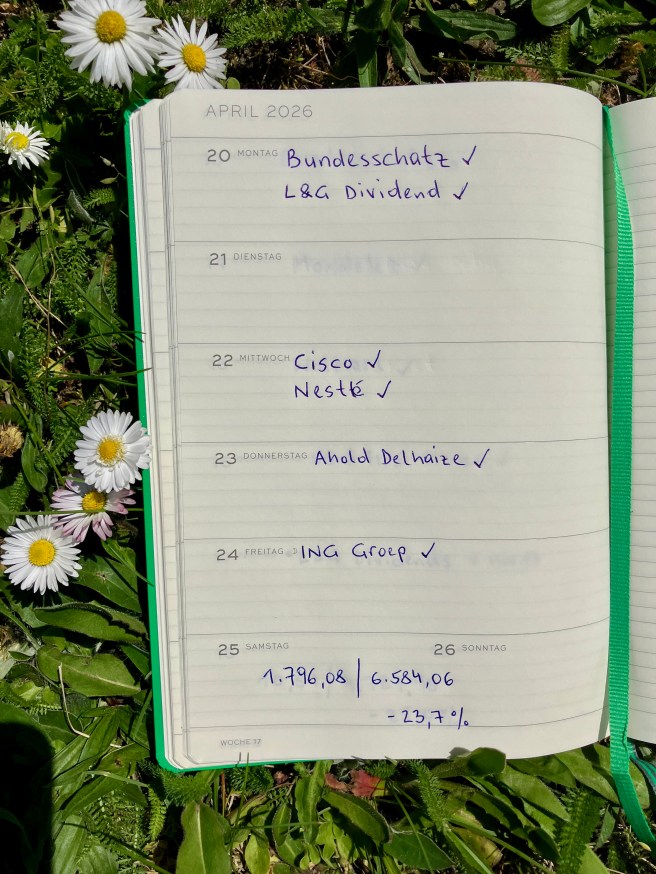 APRIL 2026
20 MONTAG Bundesschatz ✓
L&G Dividend ✓
21 DIENSTAG
22 MITTWOCH Cisco ✓
Nestlé ✓
23 DONNERSTAG Ahold Delhaize ✓
24 FREITAG ING Groep ✓
25 SAMSTAG 26 SONNTAG
1.796,08 | 6.584,06
-23,7%
WOCHE 17